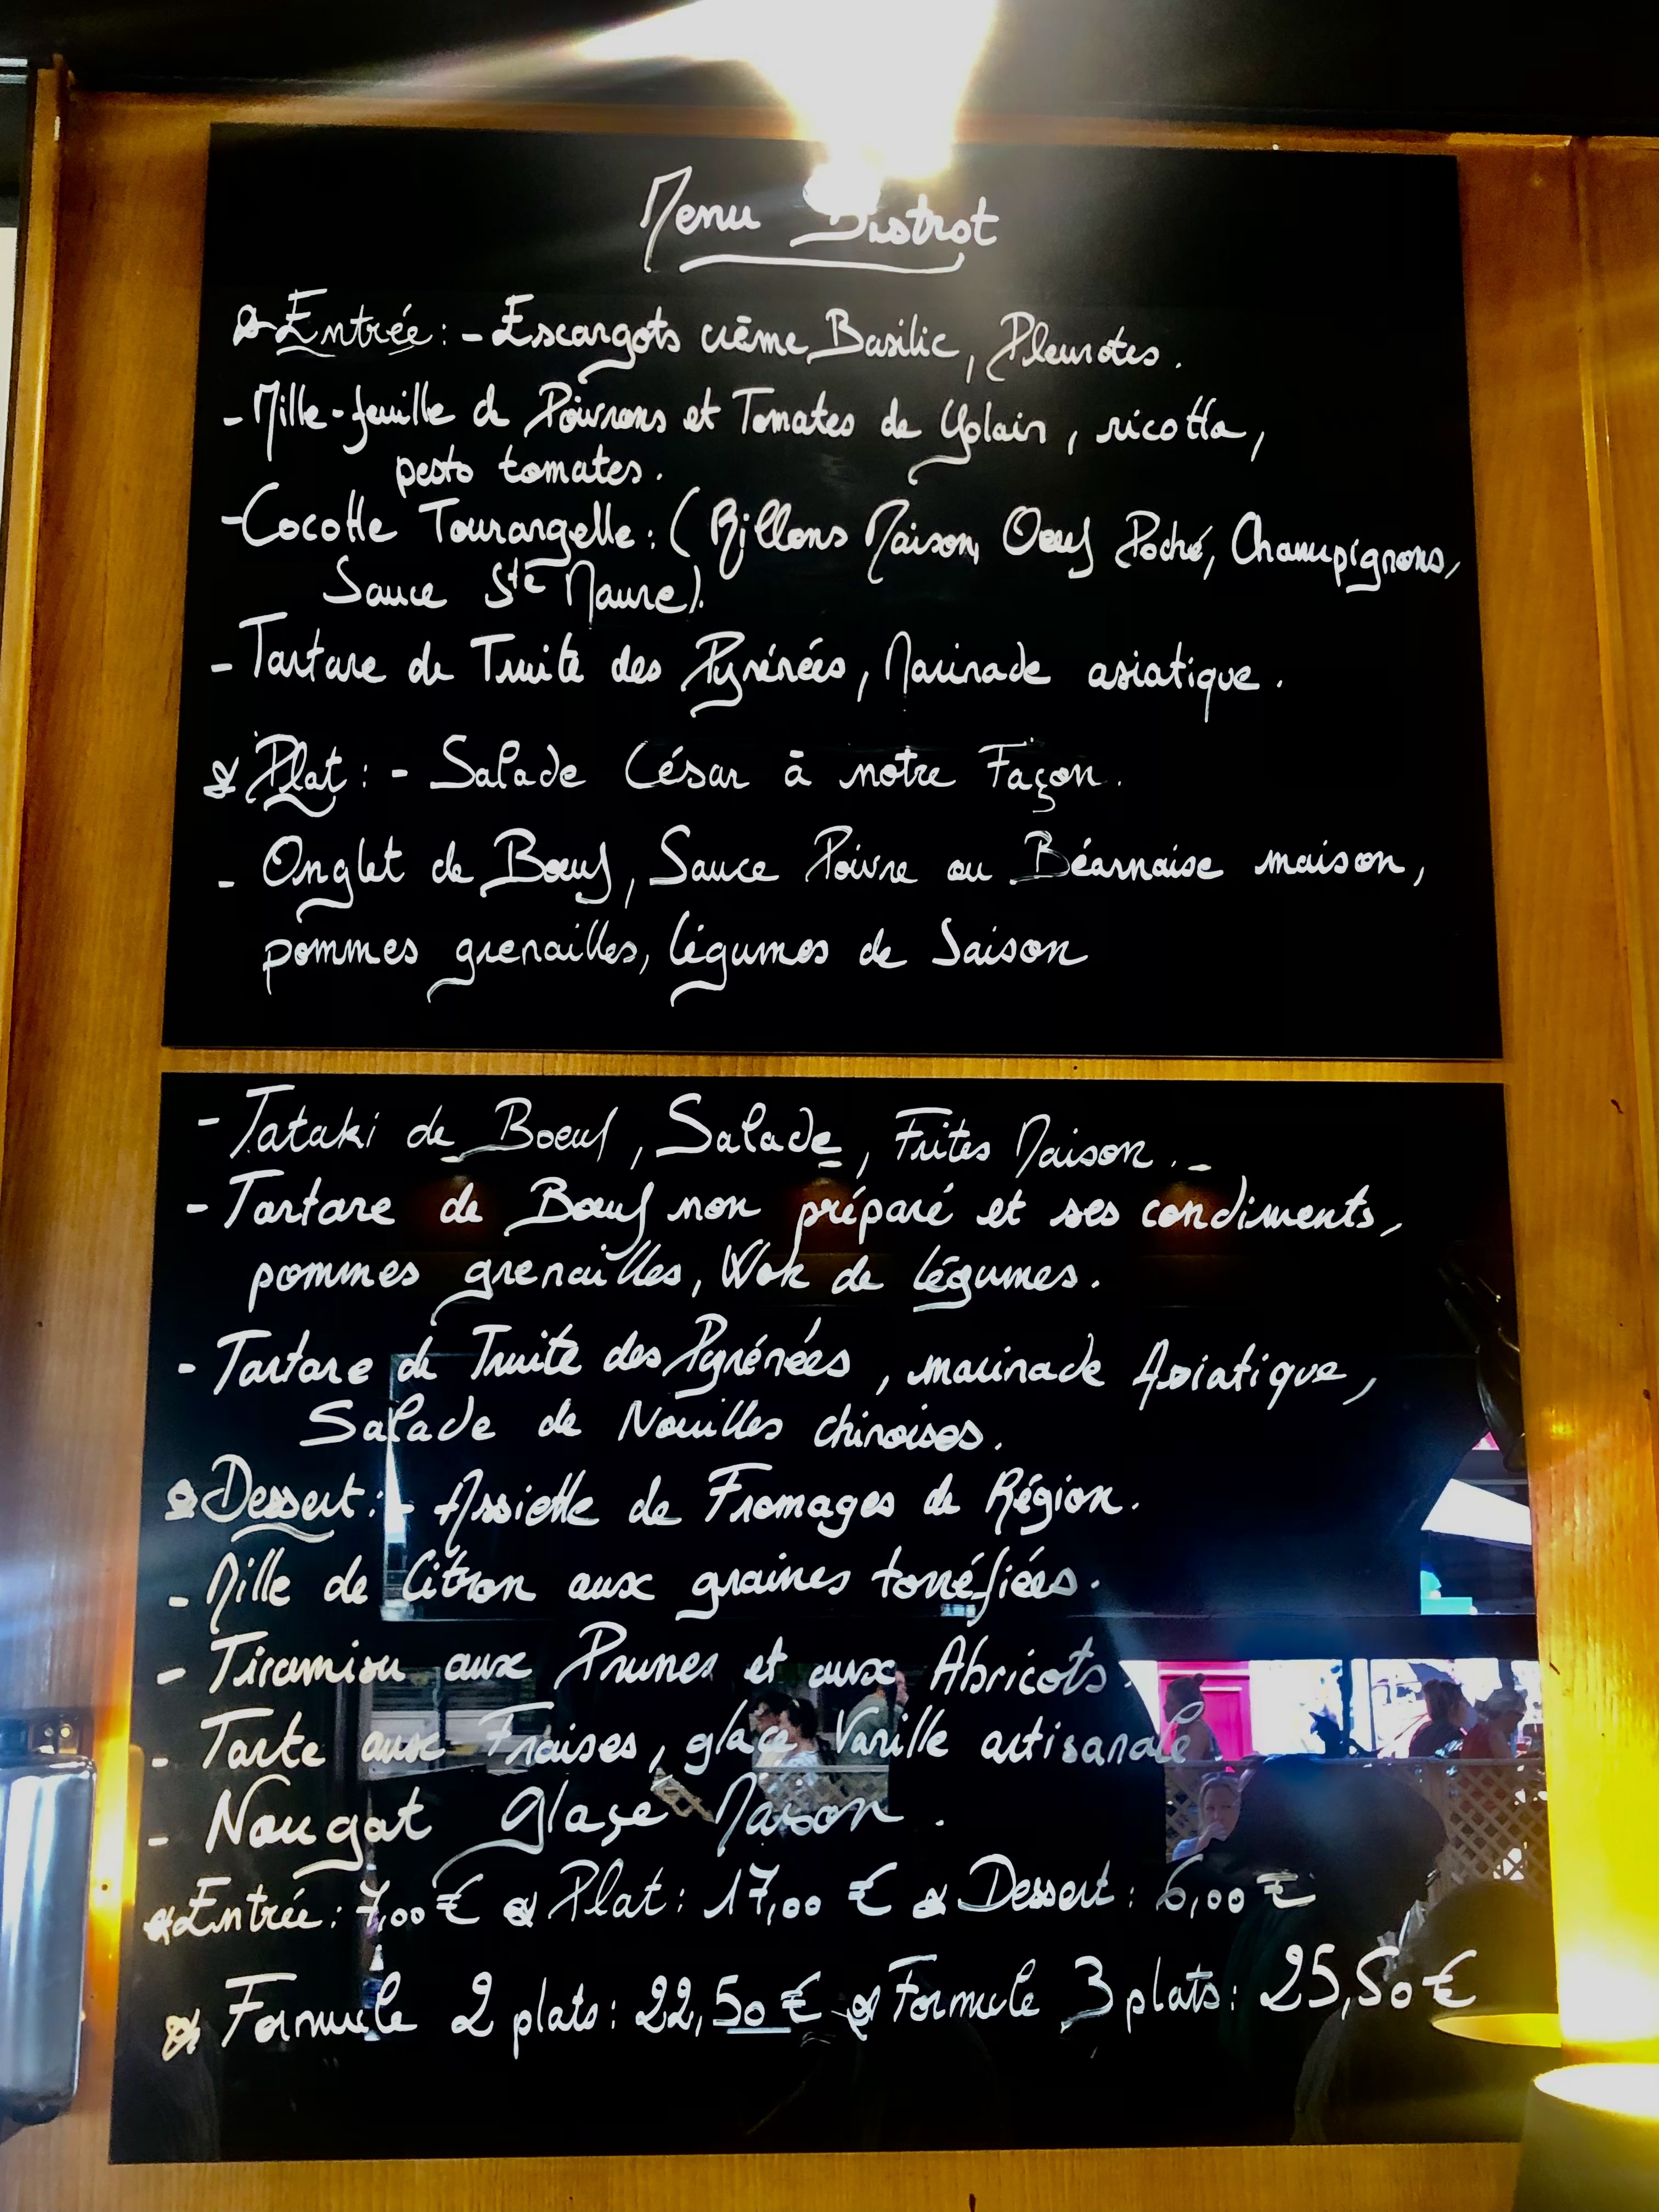 Menu Bistrot
Entrée : - Escargots crème Basilic, Pleurotes.
- Mille-feuille de Poivrons et Tomates de Yolain, ricotta,
pesto tomates.
- Cocotte Tourangelle : (Rillons Maison, Oeuf Poché, Champignons,
Sauce Ste Maure).
- Tartare de Truite des Pyrénées, Marinade asiatique.
Plat : - Salade César à notre Façon.
- Onglet de Bœuf, Sauce Poivre ou Béarnaise maison,
pommes grenailles, légumes de Saison
- Tataki de Boeuf, Salade, Frites Maison.
- Tartare de Bœuf non préparé et ses condiments,
pommes grenailles, Wok de légumes.
- Tartare de Truite des Pyrénées, marinade Asiatique,
Salade de Nouilles chinoises.
Dessert : - Assiette de Fromages de Région.
- Mille de Citron aux graines torréfiées.
- Tiramisu aux Prunes et aux Abricots.
- Tarte aux Fraises, glace Vanille artisanale
- Nougat Glaçe Maison.
Entrée : 7,00 € Plat : 17,00 € Dessert : 6,00 €
Formule 2 plats : 22,50 € Formule 3 plats : 25,50 €